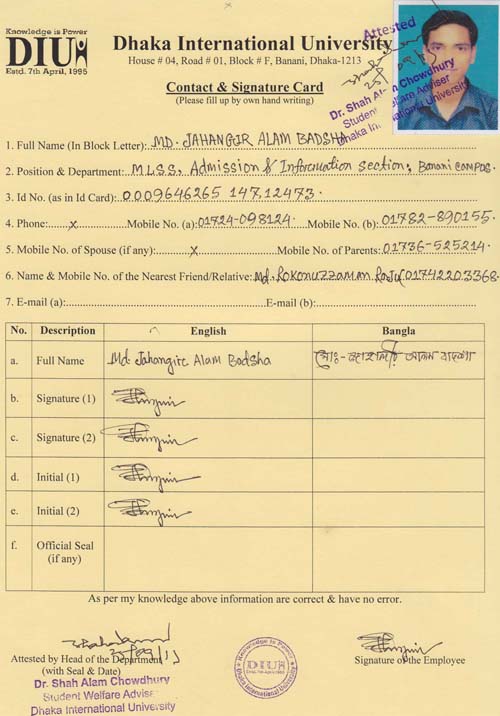 Knowledge is Power
DIU
Estd. 7th April, 1995
Dhaka International University
House # 04, Road # 01, Block # F, Banani, Dhaka-1213
Contact & Signature Card
(Please fill up by own hand writing)
Attested
Dr. Shah Alam Chowdhury
Student Welfare Adviser
Dhaka International University
1. Full Name (In Block Letter): MD. JAHANGIR ALAM BADSHA
2. Position & Department: M.L.S.S, Admission & Information section, Banani campas.
3. Id No. (as in Id Card): 0009646265 147,12473.
4. Phone: x Mobile No. (a): 01724-098124. Mobile No. (b): 01782-890155.
5. Mobile No. of Spouse (if any): x Mobile No. of Parents: 01736-525214.
6. Name & Mobile No. of the Nearest Friend/Relative: Md. Rokonuzzaman Raju 01742203368.
7. E-mail (a): E-mail (b):
No. Description English Bangla
a. Full Name Md. Jahangire Alam Badsha মোঃ- জাহাঙ্গীর আলম বাদশা
b. Signature (1)
c. Signature (2)
d. Initial (1)
e. Initial (2)
f. Official Seal
(if any)
As per my knowledge above information are correct & have no error.
Attested by Head of the Department
(with Seal & Date)
Signature of the Employee
Dr. Shah Alam Chowdhury
Student Welfare Advise
Dhaka International University
Knowledge is Power
DIU
Dhaka International University